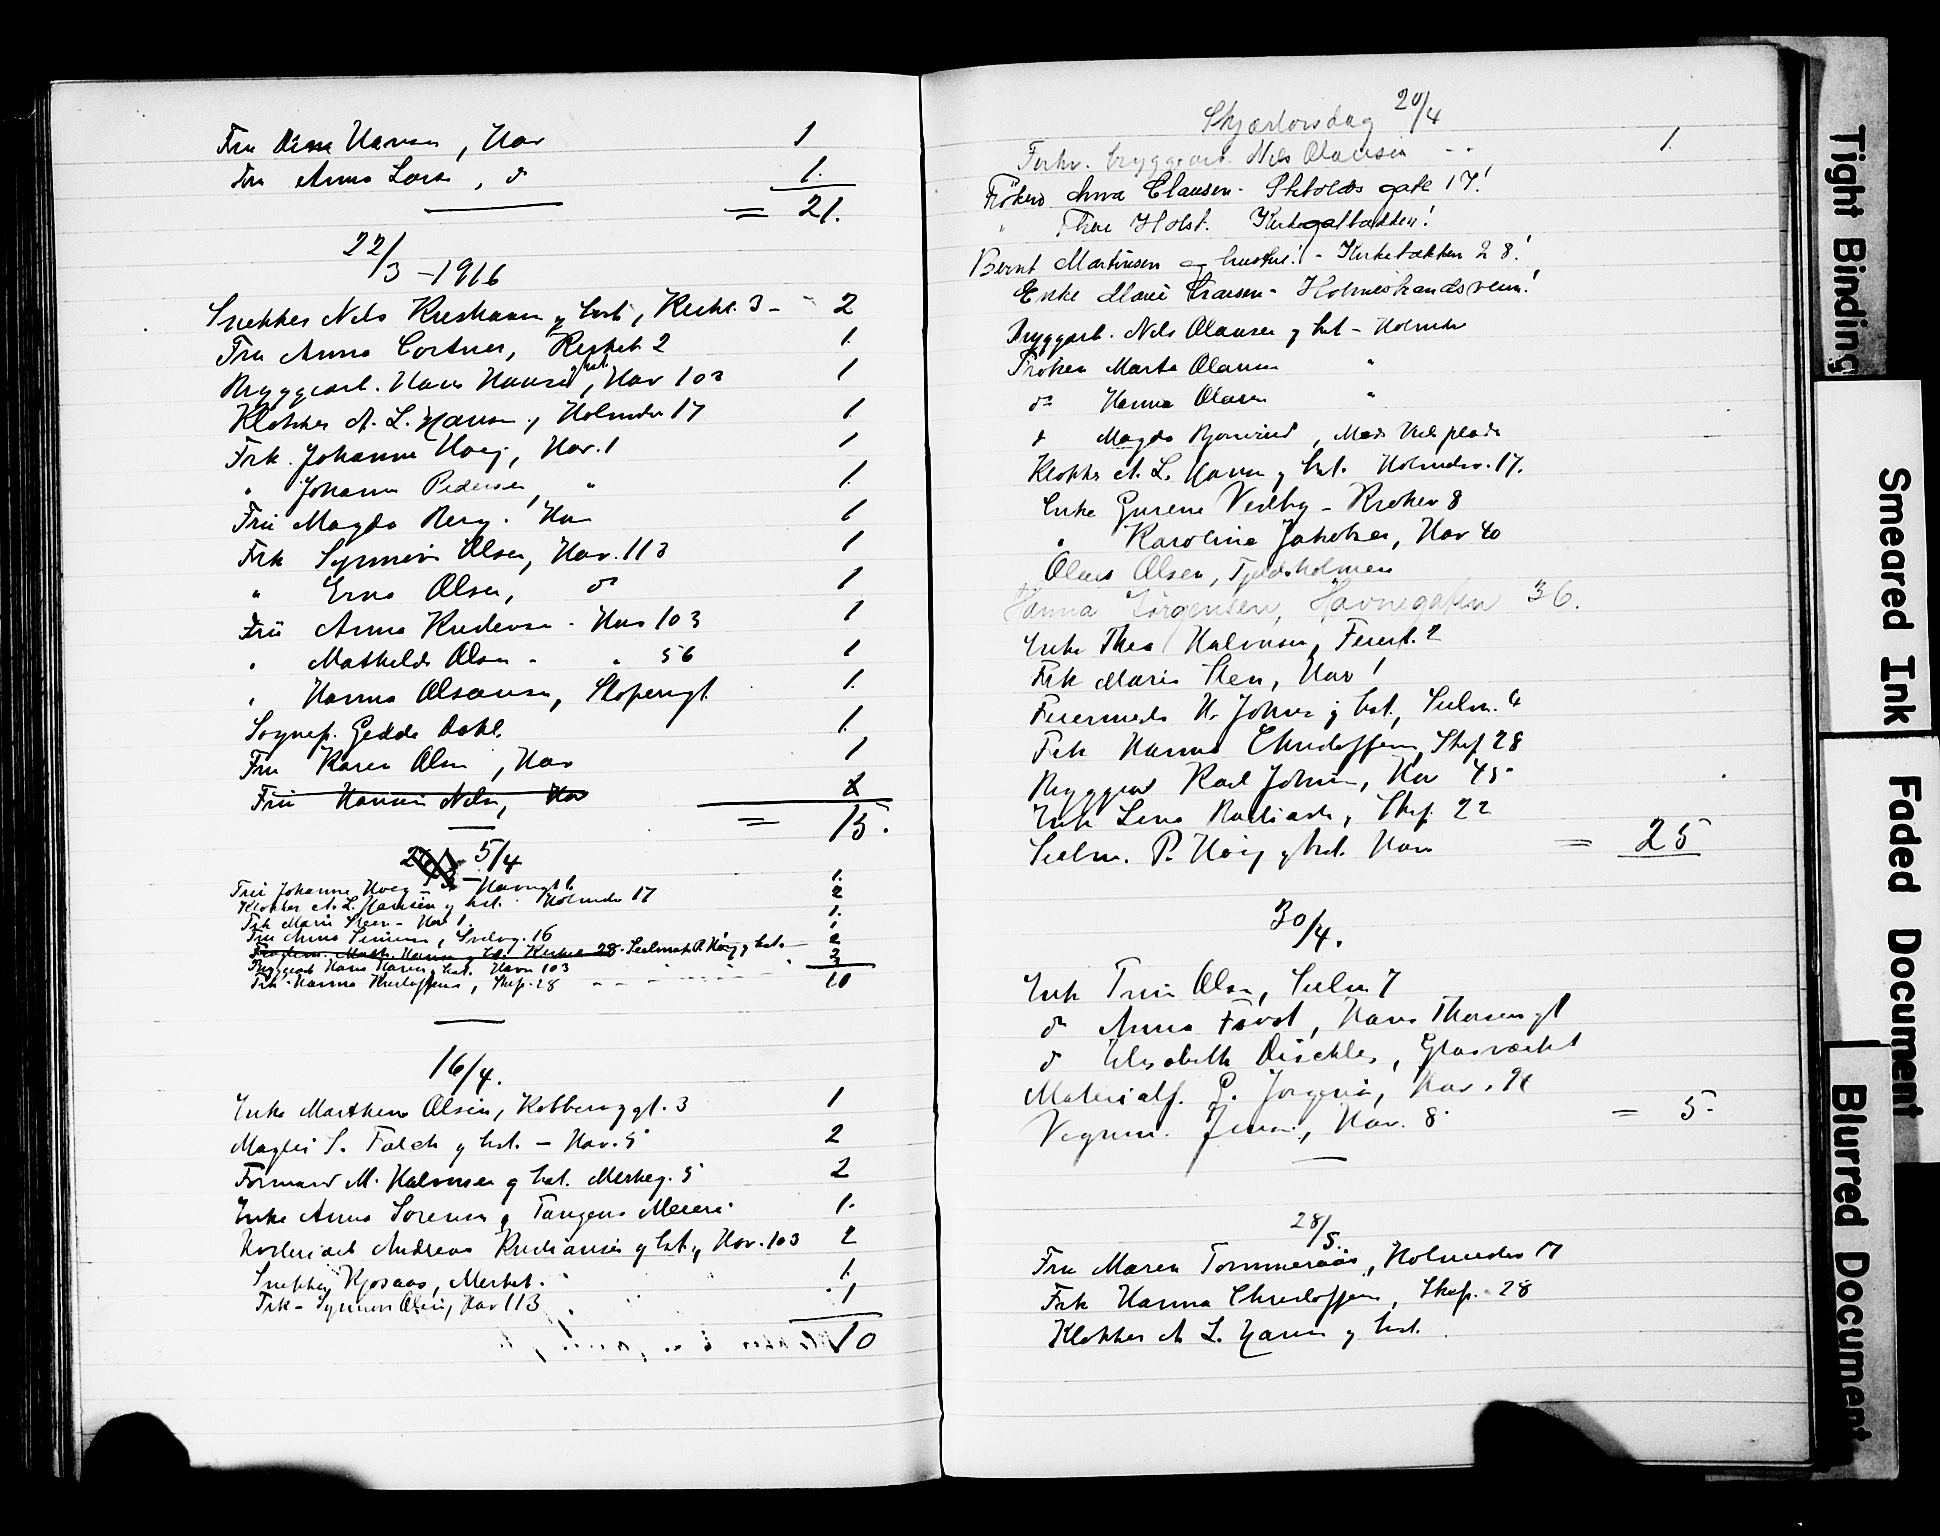 Fru Dina Hansen, Hav 1
Fru Anna Lars, do 1.
= 21.
22/3 - 1916
Snekker Nils Kristiansen og hst, Kirkt. 3 - 2
Fru Anna Cortner, Kirket 2 1.
Bryggearb. Hans Hansen og hst., Hav 103 1
Klokker A. L. Hansen, Holmedr 17 1.
Frk. Johanne Hoeg, Hav. 1 1
" Johanne Pedersen " 1.
Fru Magda Berg. Hav 1
Frk Synnøve Olsen, Hav. 113 1
" Erna Olsen, do 1
Frü Anna Andersen - Hav 103 1
" Mathilde Olsen - " 56 1
" Hanna Olsansen, Skoperugt. 1.
Sognep. Gedde Dahl. 1.
Fru Karen Olsen, Hav 1
Fru Hanna Nils, Hav 1
= 15.
5/4
Frü Johanne Hoeg - Havnegt 1. 1.
Klokker A. L. Hansen og hst. Holmedr 17 2
Frk Marie Steen - Hav 1. 1.
Fru Anna Simensen, Sndvg. 16 1
Hansen og hst. Kirket 28. Seilmak. P. Høeg og hst. 2
Bryggearb Hans Hansen og hst. Havn 103 2
Frk. Hanna Kristoffersen, Skip. 28
10
16/4.
Enke Marthine Olsen, Kobberuggt. 3 1
Magter S. Falch og hst. - Hav. 5 2
Formand M. Halvorsen og hst. Merkeg. 5 2
Enke Anna Sorensen, Tangens Meieri 1.
Andreas Kristiansen og hst, Hav. 103 2
Snekker Kjosaas, Merket. 1.
Frk - Synnøve Olsen, Hav 113 1
10
Skjærtorsdag 20/4
Forhv. bryggearb. Nils Olausen - - 1.
Frøken Anna Clausen - Skiolds gate 17!
" Thea Holst. Kirkegatbakken!
Bernt Martinsen og hustru! - Kirkebakken 28!
Enke Marie Graesen - Holmestrandsvein!
Bryggarb. Nils Olausen og hst - Holmedr
Frøken Marta Olausen "
do Hanna Olausen "
do Magda Bjornerud, Mads Viels plads
Klokker A. L. Hansen og hst. Holmedr. 17.
Enke Gurine Vedby - Kroken 8
" Karoline Jakobsen, Hav 40
Olaus Olsen, Tjeldsholmen
Hanna Jørgensen, Havnegaten 36.
Enke Thea Halvorsen, Feiert. 2
Frk Marie Steen, Hav 1
Feiermeds H. Johnsen og hst., Seilm. 6
Frk Hanna Christoffersen, Skip 28
Bryggearb Karl Johnsen, Hav 45
Enke Lena, Skip. 22
Seilm. P. Høeg og hst. Hav = 25
30/4.
Enke Trine Olsen, Seilm 7
do Anna Fivst, Hans Thorsensgt
do Elisabeth Dischler, Glasværket
Materialf. G. Jorgensen, Hav. 91
Vognm. Jensen, Hav. 8 = 5-
28/5.
Fru Maren Tommeraas, Holmedr 17
Frk Hanna Christoffersen, Skip. 28
Klokker A L. Hansen og hst.
Tight Binding
Smeared Ink
Faded Document
Blurred Document